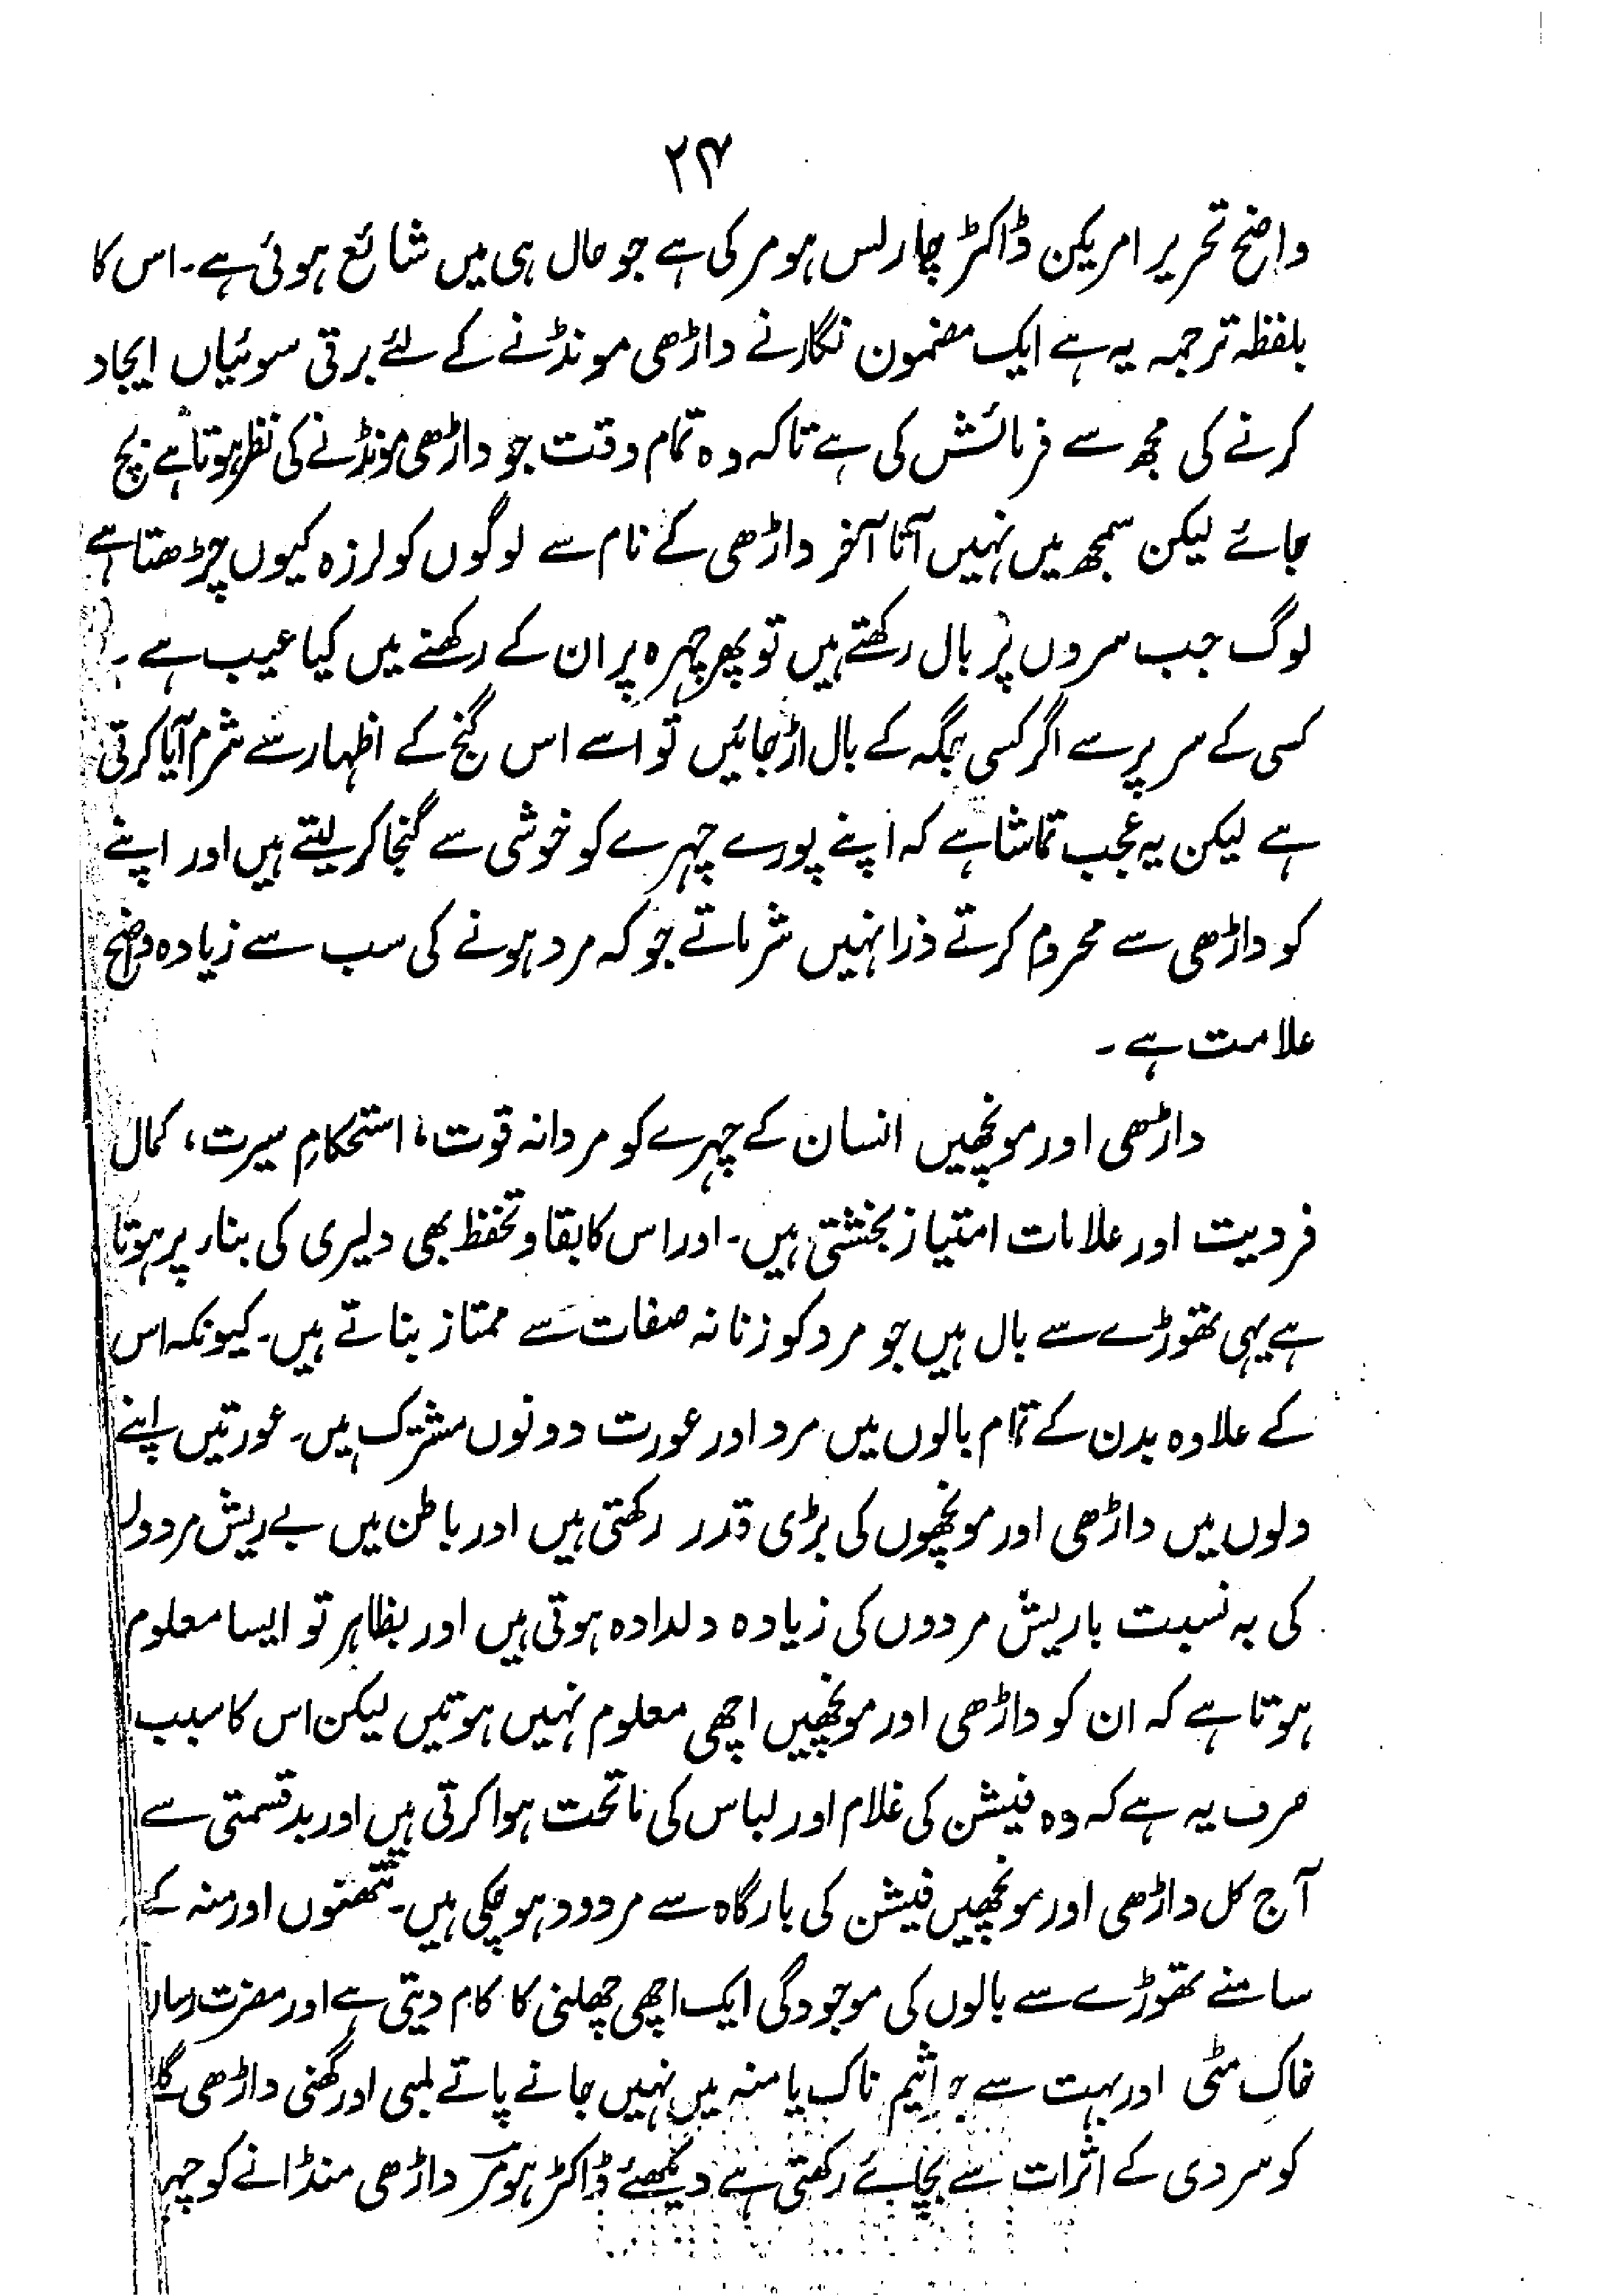 ۲۴
واضح تحریر امریکن ڈاکٹر چارلس ہومر کی ہے جو حال ہی میں شائع ہوئی ہے۔ اس کا
بلفظہ ترجمہ یہ ہے ایک مضمون نگار نے داڑھی مونڈنے کے لئے برقی سوئیاں ایجاد
کرنے کی مجھ سے فرمائش کی ہے تاکہ وہ تمام وقت جو داڑھی مونڈنے کی نظر ہوتا ہے بچ
جائے لیکن سمجھ میں نہیں آتا آخر داڑھی کے نام سے لوگوں کو لرزہ کیوں چڑھتا ہے
لوگ جب سروں پر بال رکھتے ہیں تو پھر چہرہ پر ان کے رکھنے میں کیا عیب ہے۔
کسی کے سر پر سے اگر کسی جگہ کے بال اڑ جائیں تو اسے اس گنج کے اظہار سے شرم آیا کرتی
ہے لیکن یہ عجب تماشا ہے کہ اپنے پورے چہرے کو خوشی سے گنجا کر لیتے ہیں اور اپنے
کو داڑھی سے محروم کرتے ذرا نہیں شرماتے جو کہ مرد ہونے کی سب سے زیادہ واضح
علامت ہے۔
داڑھی اور مونچھیں انسان کے چہرے کو مردانہ قوت، استحکامِ سیرت، کمال
فردیت اور علامات امتیاز بخشتی ہیں۔ اور اس کا بقا و تحفظ بھی دلیری کی بناء پر ہوتا
ہے یہی تھوڑے سے بال ہیں جو مرد کو زنانہ صفات سے ممتاز بناتے ہیں۔ کیونکہ اس
کے علاوہ بدن کے تمام بالوں میں مرد اور عورت دونوں مشترک ہیں۔ عورتیں اپنے
دلوں میں داڑھی اور مونچھوں کی بڑی قدر رکھتی ہیں اور باطن میں بے ریش مردوں
کی بہ نسبت باریش مردوں کی زیادہ دلدادہ ہوتی ہیں اور بظاہر تو ایسا معلوم
ہوتا ہے کہ ان کو داڑھی اور مونچھیں اچھی معلوم نہیں ہوتیں لیکن اس کا سبب
صرف یہ ہے کہ وہ فیشن کی غلام اور لباس کی ماتحت ہوا کرتی ہیں اور بدقسمتی سے
آج کل داڑھی اور مونچھیں فیشن کی بارگاہ سے مردود ہو چکی ہیں۔ نتھنوں اور منہ کے
سامنے تھوڑے سے بالوں کی موجودگی ایک اچھی چھلنی کا کام دیتی ہے اور مضرت رساں
خاک مٹی اور بہت سے جراثیم ناک یا منہ میں نہیں جانے پاتے لمبی اور گھنی داڑھی گلے
کو سردی کے اثرات سے بچائے رکھتی ہے دیکھئے ڈاکٹر ہومر داڑھی منڈانے کو